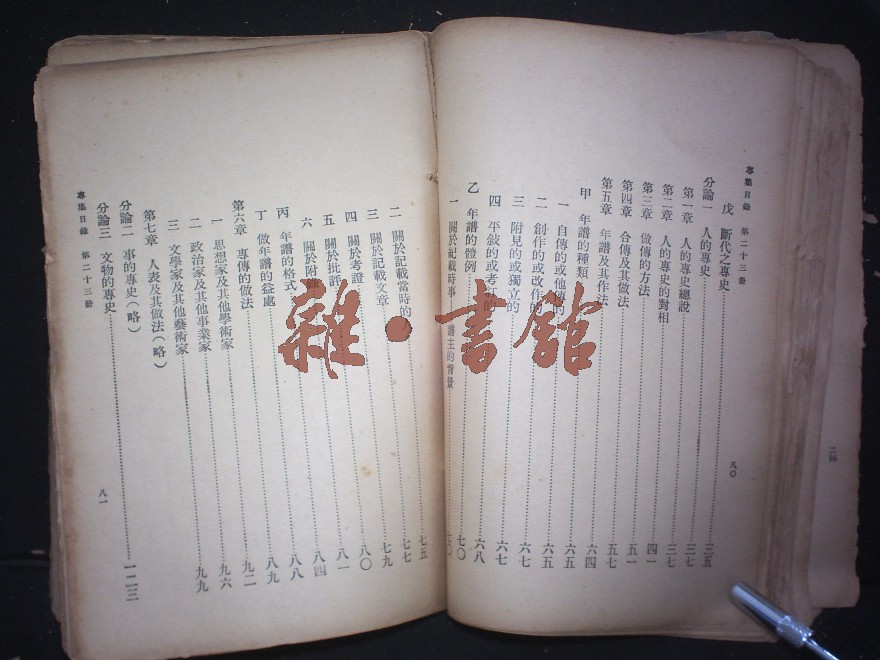 專集目錄 第二十三册
八〇
戊 斷代之專史 三五
分論一 人的專史 三七
第一章 人的專史總說 三七
第二章 人的專史的對相 四一
第三章 做傳的方法 五一
第四章 合傳及其做法 五七
第五章 年譜及其作法 六四
甲 年譜的種類 六五
一 自傳的或他傳的 六五
二 創作的或改作的 六七
三 附見的或獨立的 六七
四 平敍的或考訂的 六八
乙 年譜的體例 七〇
一 關於紀載時事 譜主的背景
二 關於記載當時的 七五
三 關於記載文章 七七
四 關於考證 七九
五 關於批評 八〇
六 關於附錄 八一
丙 年譜的格式 八四
丁 做年譜的益處 八八
第六章 專傳的做法 八九
一 思想家及其他學術家 九二
二 政治家及其他事業家 九六
三 文學家及其他藝術家 九九
第七章 人表及其做法（略） 九九
分論二 事的專史（略）
分論三 文物的專史 一二三
八一
專集目錄 第二十三册
雜·書館